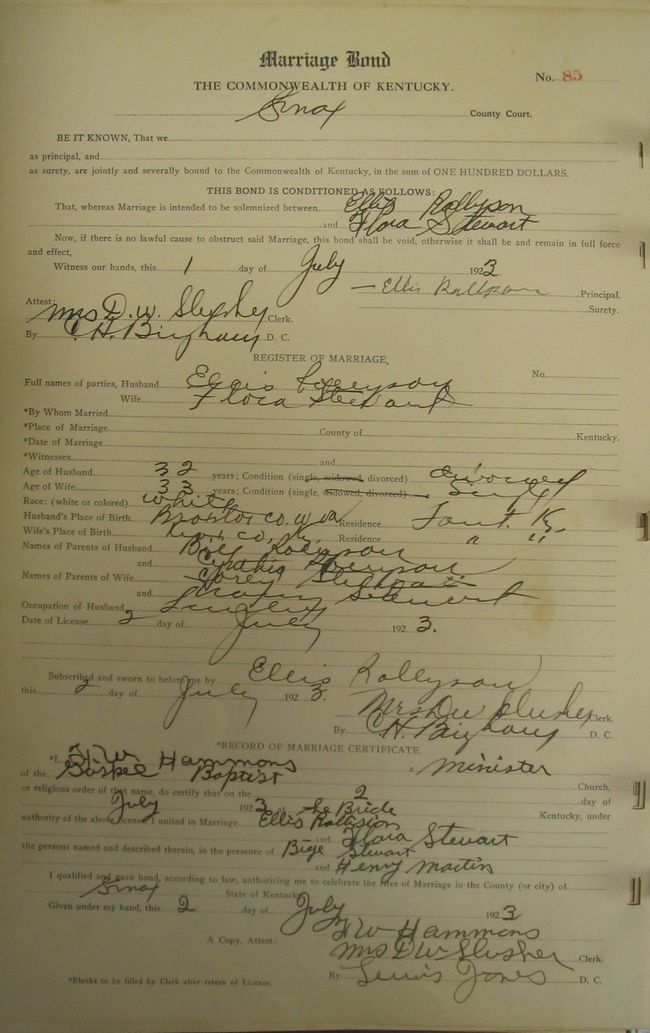 Marriage Bond
No. 85
THE COMMONWEALTH OF KENTUCKY.
Knox County Court.
BE IT KNOWN, That we
as principal, and
as surety, are jointly and severally bound to the Commonwealth of Kentucky, in the sum of ONE HUNDRED DOLLARS.
THIS BOND IS CONDITIONED AS FOLLOWS:
That, whereas Marriage is intended to be solemnized between Ellis Rollyson
and Flora Stewart
Now, if there is no lawful cause to obstruct said Marriage, this bond shall be void, otherwise it shall be and remain in full force
and effect,
Witness our hands, this 1 day of July 1923
Ellis Rollyson Principal.
Surety.
Attest:
Mrs D. W. Slusher Clerk.
By C. H. Bingham D. C.
REGISTER OF MARRIAGE,
No.
Full names of parties, Husband Ellis
Wife Flora Stewart
*By Whom Married
*Place of Marriage County of Kentucky.
*Date of Marriage
*Witnesses and
Age of Husband 32 years; Condition (single, widowed, divorced) divorced
Age of Wife 33 years; Condition (single, widowed, divorced) Single
Race: (white or colored) white
Husband's Place of Birth co. W Va Residence Ky.
Wife's Place of Birth Knox co. Ky. Residence " "
Names of Parents of Husband Rollyson
and Cynthia
Names of Parents of Wife
and Stewart
Occupation of Husband
Date of License 2 day of July 1923.
Subscribed and sworn to before me by Ellis Rollyson
this 2 day of July 1923.
Mrs D W Slusher Clerk.
By C. H. Bingham D. C.
*RECORD OF MARRIAGE CERTIFICATE.
*I, H W Hammons a minister
of the Gospel Baptist Church,
or religious order of that name, do certify that on the 2 day of
July 1923 at the Bride Kentucky, under
authority of the above license, I united in Marriage Ellis Rollison
and Flora Stewart
the persons named and described therein, in the presence of Bige Stewart
and Henry Martin
I qualified and gave bond, according to law, authorizing me to celebrate the rites of Marriage in the County (or city) of
Knox State of Kentucky
Given under my hand, this 2 day of July 1923
H W Hammons
A Copy, Attest: Mrs D W Slusher Clerk.
By Lewis Jones D. C.
*Blanks to be filled by Clerk after return of License.